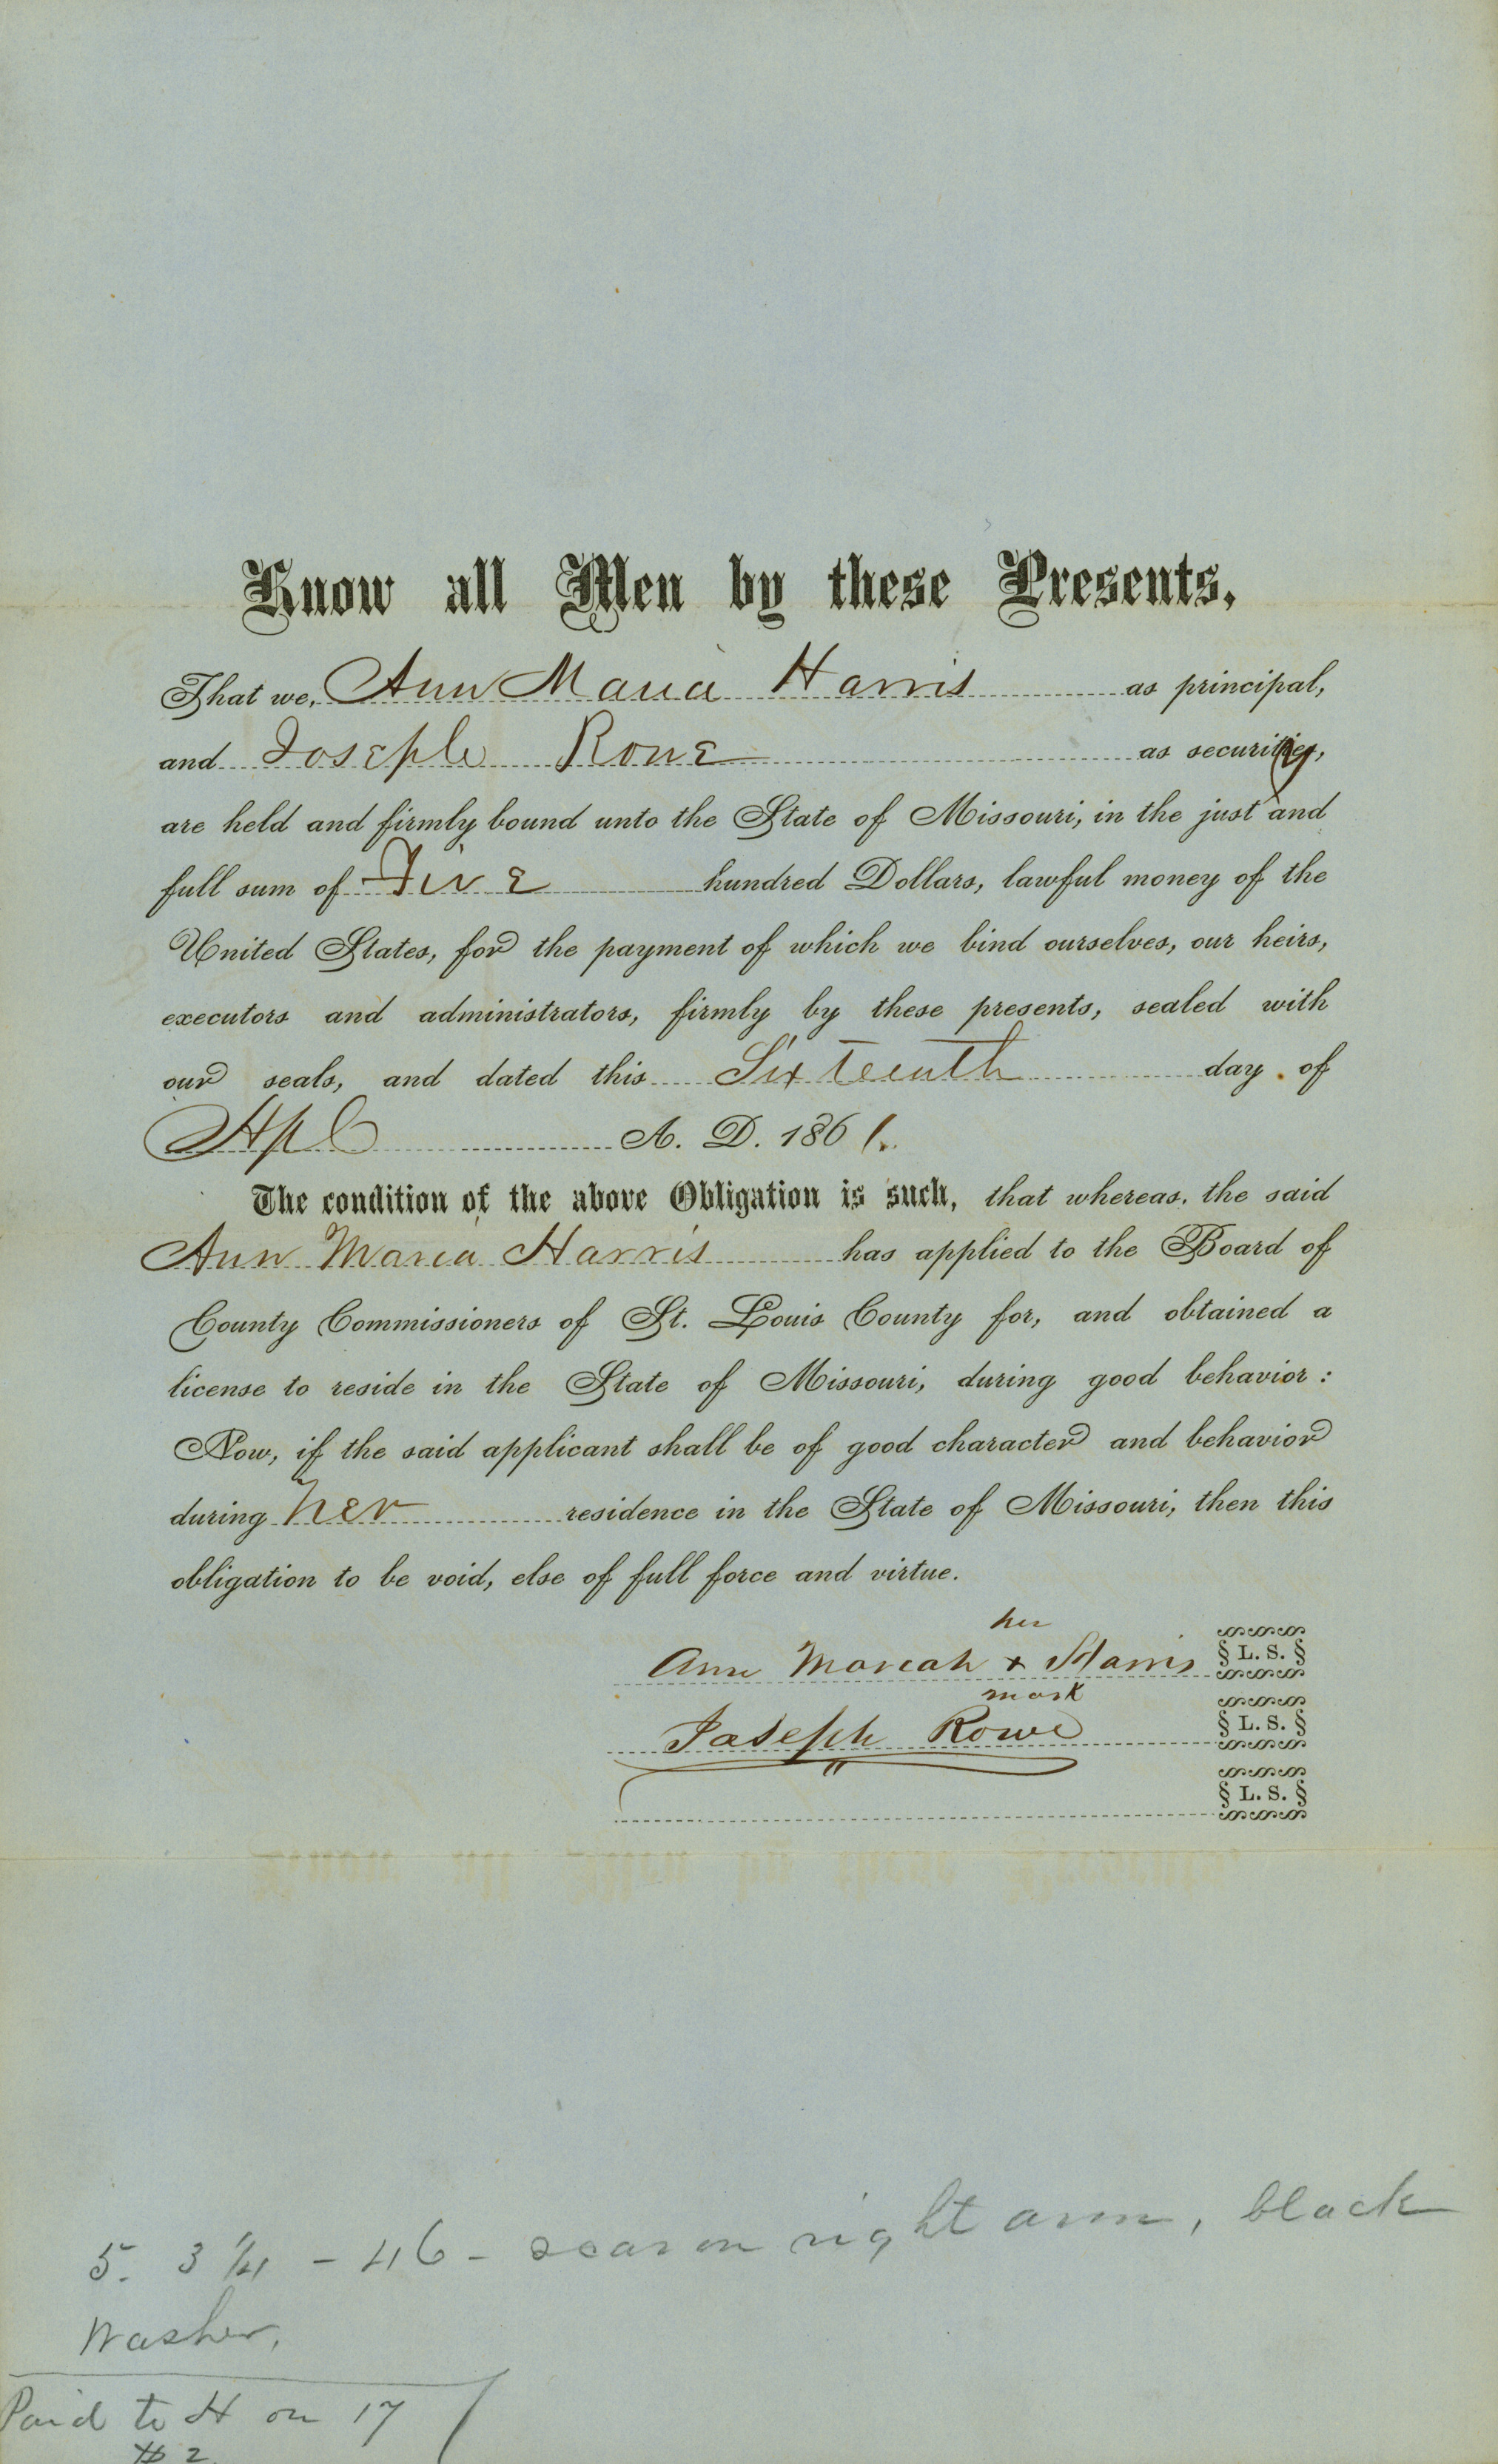 Know all Men by these Presents,
That we, Ann Maria Harris as principal,
and Joseph Rowe as security,
are held and firmly bound unto the State of Missouri, in the just and
full sum of Five hundred Dollars, lawful money of the
United States, for the payment of which we bind ourselves, our heirs,
executors and administrators, firmly by these presents, sealed with
our seals, and dated this Sixteenth day of
Apl A. D. 1861.
The condition of the above Obligation is such, that whereas, the said
Ann Maria Harris has applied to the Board of
County Commissioners of St. Louis County for, and obtained a
license to reside in the State of Missouri, during good behavior:
Now, if the said applicant shall be of good character and behavior
during her residence in the State of Missouri, then this
obligation to be void, else of full force and virtue.
her
Ann Moriah x Harris § L. S. §
mark
Joseph Rowe § L. S. §
§ L. S. §
5. 3 1/4 - 46 - scar on right arm, black
Washer,
Paid to H on 17
$2